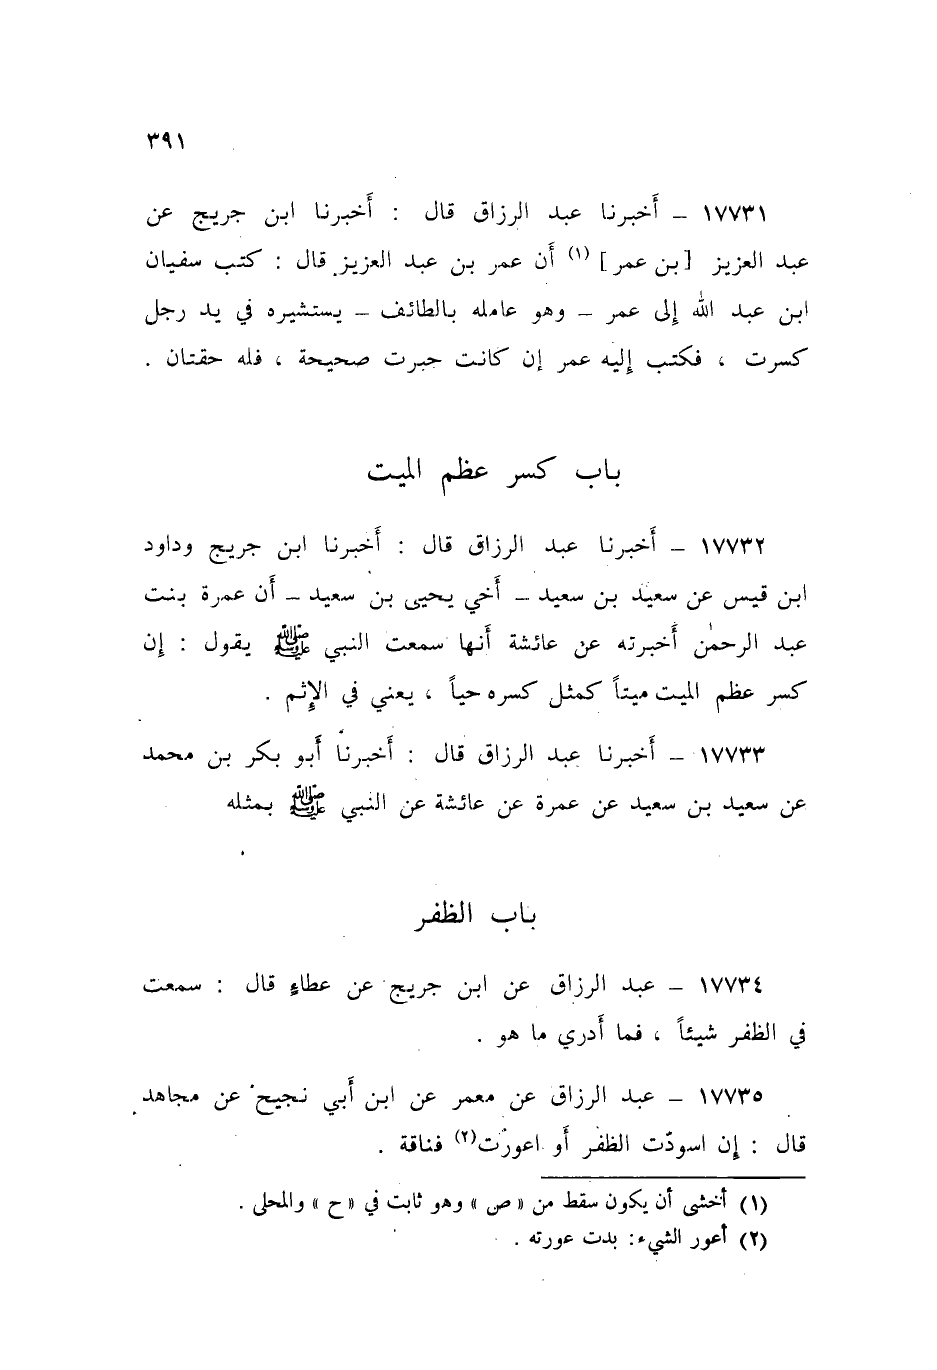 ٣٩١
١٧٧٣١ – أَخبرنا عبد الرزاق قال : أَخبرنا ابن جريج عن
عبد العزيز [بن عمر] (١) أَن عمر بن عبد العزيز قال : كتب سفيان
ابن عبد الله إِلى عمر – وهو عامله بالطائف – يستشيره في يد رجل
كسرت ، فكتب إِليه عمر إن كانت جبرت صحيحة ، فله حقتان .
باب كسر عظم الميت
١٧٧٣٢ – أَخبرنا عبد الرزاق قال : أَخبرنا ابن جريج وداود
ابن قيس عن سعيد بن سعيد – أَخي يحيى بن سعيد – أَن عمرة بنت
عبد الرحمٰن أَخبرته عن عائشة أَنها سمعت النبي ﷺ يقول : إِن
كسر عظم الميت ميتاً كمثل كسره حياً ، يعني في الإِثم .
١٧٧٣٣ – أَخبرنا عبد الرزاق قال : أَخبرنا أَبو بكر بن محمد
عن سعيد بن سعيد عن عمرة عن عائشة عن النبي ﷺ بمثله
باب الظفر
١٧٧٣٤ – عبد الرزاق عن ابن جريج عن عطاءٍ قال : سمعت
في الظفر شيئاً ، فما أَدري ما هو .
١٧٧٣٥ – عبد الرزاق عن معمر عن ابن أَبي نجيح عن مجاهد
قال : إِن اسودّت الظفر أَو اعورّت(٢) فناقة .
(١) أخشى أن يكون سقط من « ص » وهو ثابت في « ح » والمحلى .
(٢) أعور الشيء: بدت عورته .